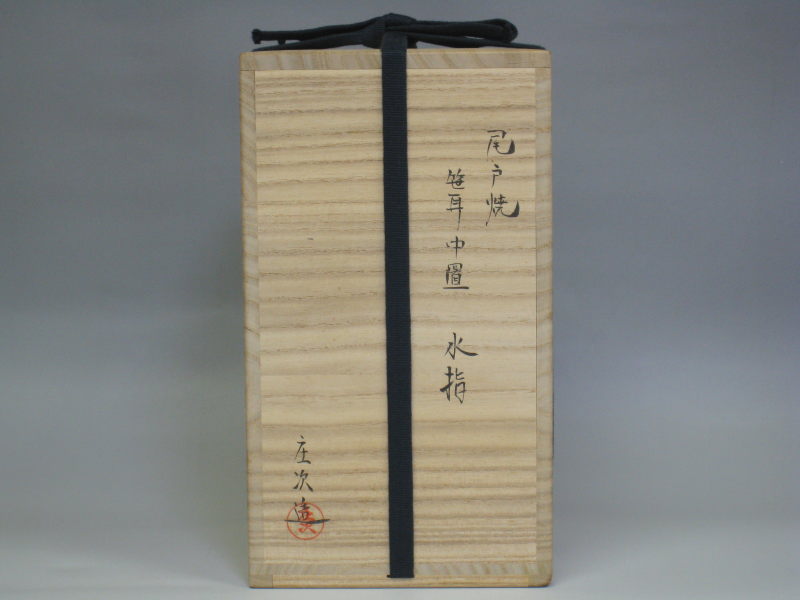 尾戸焼
笹耳中置 水指
庄次造